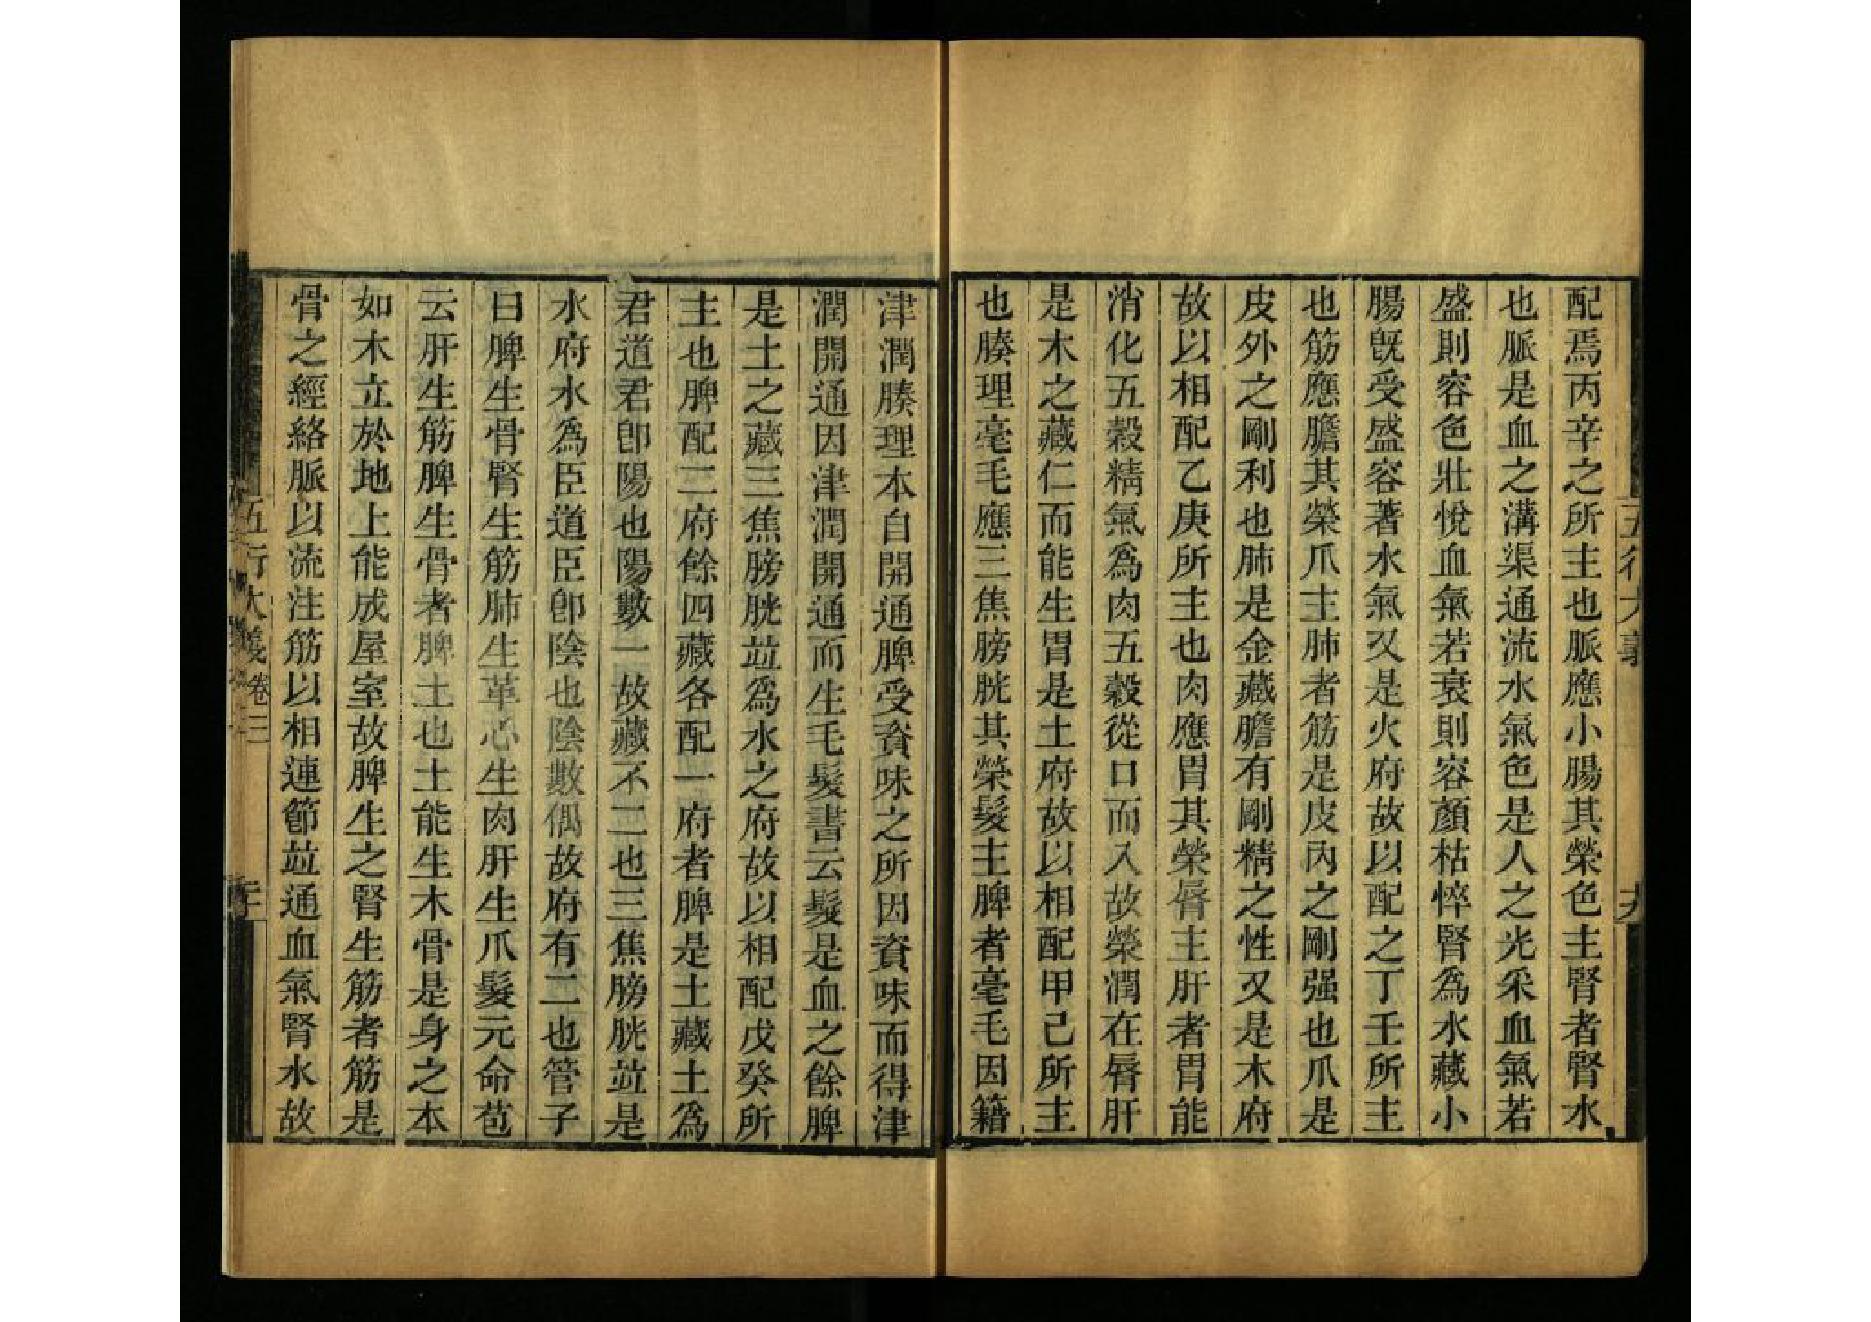 配焉丙辛之所主也脈應小腸其榮色主腎者腎水
也脈是血之溝渠通流水氣色是人之光采血氣若
盛則容色壯悅血氣若衰則容顏枯悴腎為水藏小
腸旣受盛容著水氣又是火府故以配之丁壬所主
也筋應膽其榮爪主肺者筋是皮內之剛强也爪是
皮外之剛利也肺是金藏膽有剛精之性又是木府
故以相配乙庚所主也肉應胃其榮脣主肝者胃能
消化五穀精氣爲肉五穀從口而入故榮潤在脣肝
是木之藏仁而能生胃是土府故以相配甲己所主
也腠理毫毛應三焦膀胱其榮髮主脾者毫毛因籍
津潤腠理本自開通脾受資味之所因資味而得津
潤開通因津潤開通而生毛髮書云髮是血之餘脾
是土之藏三焦膀胱竝爲水之府故以相配戊癸所
主也脾配二府餘四藏各配一府者脾是土藏土爲
君道君卽陽也陽數一故藏不二也三焦膀胱竝是
水府水爲臣道臣卽陰也陰數偶故府有二也管子
曰脾生骨腎生筋肺生革心生肉肝生爪髮元命苞
云肝生筋脾生骨者脾土也土能生木骨是身之本
如木立於地上能成屋室故脾生之腎生筋者筋是
骨之經絡脈以流注筋以相連節竝通血氣腎水故
五行大義卷三